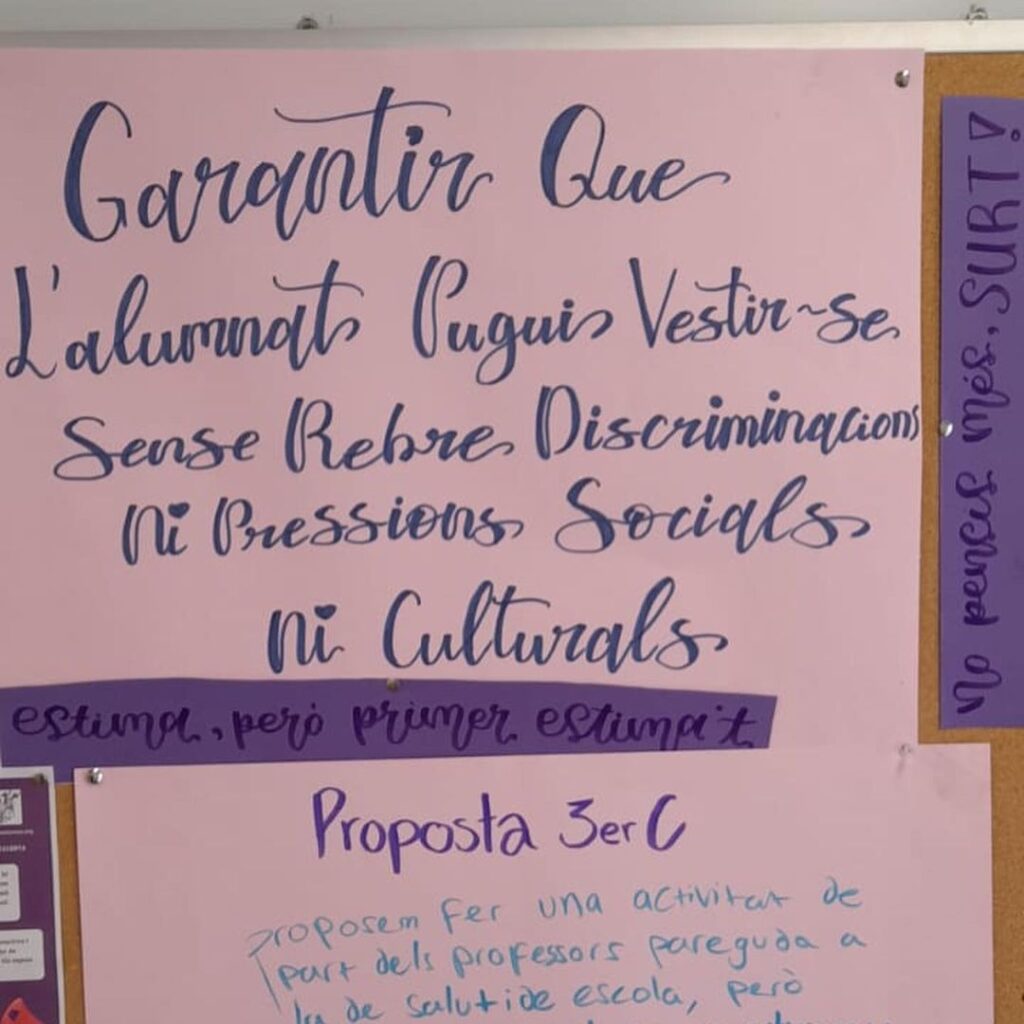 Garantir Que
L'alumnat Pugui Vestir-se
Sense Rebre Discriminacions
Ni Pressions Socials
ni Culturals
estima, però primer estima't
No pensis més, SURT!
Proposta 3er C
proposem fer una activitat de
part dels professors pareguda a
la de salut i de escola, però